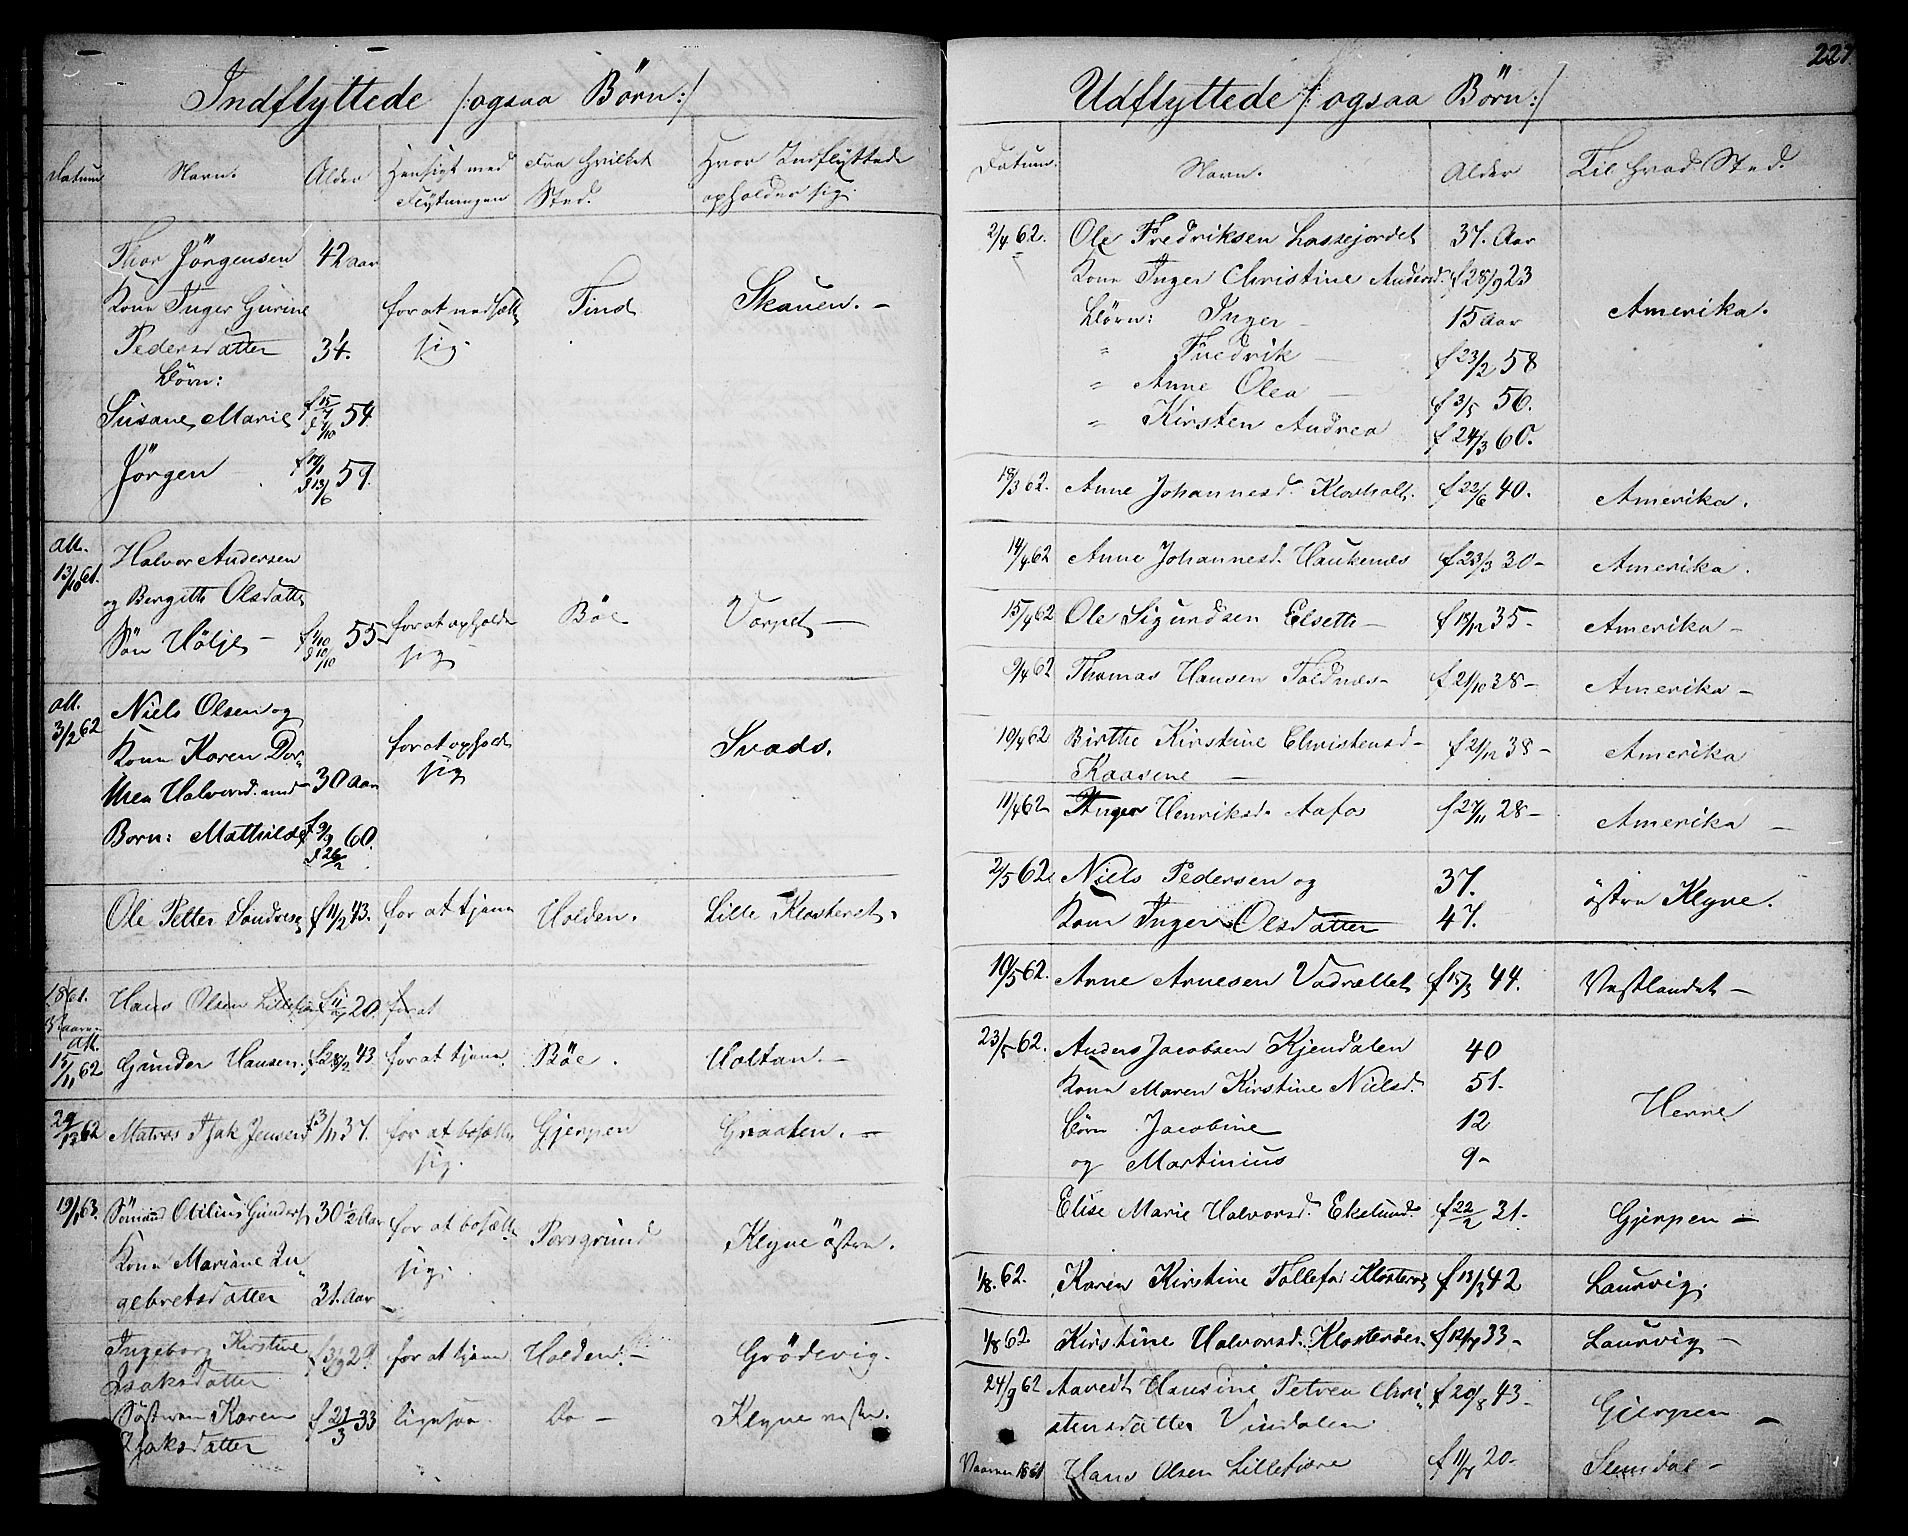 Indflyttede /:ogsaa Börn:/
Datum Navn. Alder Hensigt med Flytningen Fra hvilket Sted. Hvor Indflyttede opholder sig.
Thor Jörgensen 42 aar
Kone Inger Gurine for at nedsætte Tind Skauen. -
Pedersdatter 34. sig.
Börn:
Susane Marie f 15/7 54
Jörgen d 13/6 59.
Att. Halvor Andersen
13/10 61. og Bergitte Olsdatte
Sön Höljе - f 1/10 55 for at opholde sig Böe Vorpet -
d 10/10
Att. Niels Olsen og
3/2 62 Kone Karen Dor- for at opholde Svads.
thea Halvorsd. med 30 aar sig
Born: Mathilde f 9/9 60.
d 26/2
Ole Petter Sondres f 11/2 43. for at tjene Holden. Lille Klosteret.
1861. Hans Olsen Lillefjære f 11/7 20. for at
Vaaren
Att.
15/11 62 Gunder Hansen. f 28/2 43 for at tjene Böe. Holtan. -
29/12 62 Matros Isak Jensen f 3/11 37. for at bosætte Gjerpen Graaten. -
sig.
19/1 63. Sömand Otilius Gunders 30 1/2 Aar for at bosætte Porsgrund Klyve östre.
Kone Mariane In- sig.
gebretsdatter 31. Aar
Ingeborg Kirstine f 3/9 29. for at tjene Holden. - Grödevig.
Isaksdatter
Söstren Karen f 21/3 33 ligesaa. Do - Klyve vestre.
Isaksdatter
227
Udflyttede /:ogsaa Börn:/
Datum. Navn. Alder Til hvad Sted.
2/4 62. Ole Fredriksen Lassejordet 37. Aar
Kone Inger Christine Andersd. f 28/9 23 Amerika.
Börn: Inger - 15 Aar
" Fredrik - f 23/2 58
" Anne Olea - f 3/5 56.
" Kirsten Andrea f 24/3 60.
18/3 62. Anne Johannesd. Klovholt. f 22/6 40. Amerika.
14/4 62 Anne Johannesd. Haukenes f 23/3 30 - Amerika.
15/4 62 Ole Sigurdsen Elsette - f 18/12 35 - Amerika -
9/4 62 Thomas Hansen Foldnes - f 21/10 38 - Amerika -
10/4 62 Birthe Kirstine Christensd - f 21/12 38 - Amerika
Kaasene -
11/4 62 Inger Henriksd. Aafos f 27/11 28 - Amerika -
2/5 62. Niels Pedersen og 37. östre Klyve.
Kone Inger Olsdatter 47.
10/5 62. Arne Arnesen Vadrættet f 15/3 44. Vestlandet -
23/5 62. Anders Jacobsen Kjendalen 40
Kone Maren Kirstine Nielsd. 51. Herre
Börn Jacobine 12
og Martinius 9 -
Elise Marie Halvorsd. Ekelund. f 22/2 31. Gjerpen -
1/8. 62. Karen Kirstine Tollefsd Klosterøe f 13/3 42 Laurvig.
1/8 62. Kirstine Halvorsd. Klosteröen f 12/10 33 - Laurvig -
24/9 62 Aavedt Hansine Petrea Chri- f 20/8 43 - Gjerpen -
stensdatter Vindalen
Vaaren 1861 Hans Olsen Lillefjære f 11/7 20 - Slemdal -